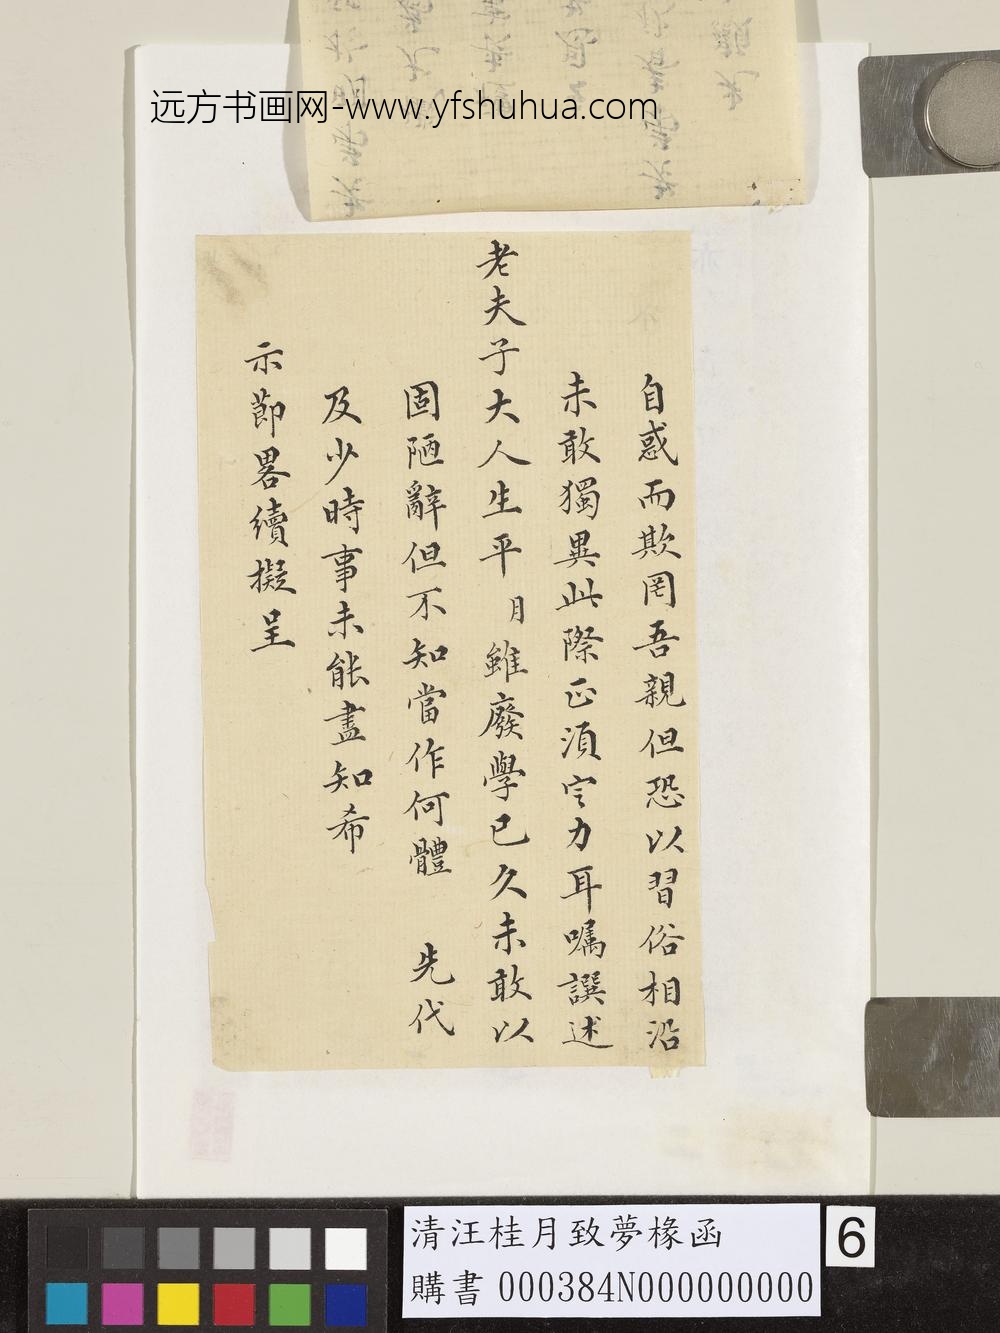 远方书画网-www.yfshuhua.com
自惑而欺罔吾親但恐以習俗相沿
未敢獨異此際正須定力耳囑譔述
老夫子大人生平 月雖廢學已久未敢以
固陋辭但不知當作何體 先代
及少時事未能盡知希
示節畧續擬呈
清汪桂月致夢椽函
購書 000384N000000000
6